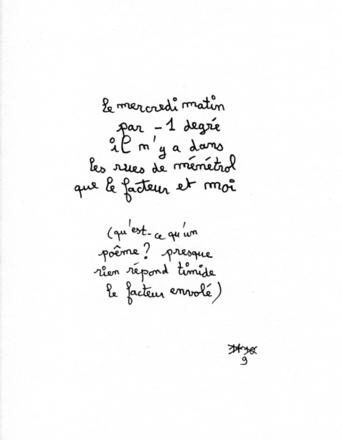 le mercredi matin
par - 1 degré
il n'y a dans
les rues de ménétrol
que le facteur et moi
(qu'est-ce qu'un
poême ? presque
rien répond timide
le facteur envolé)
9